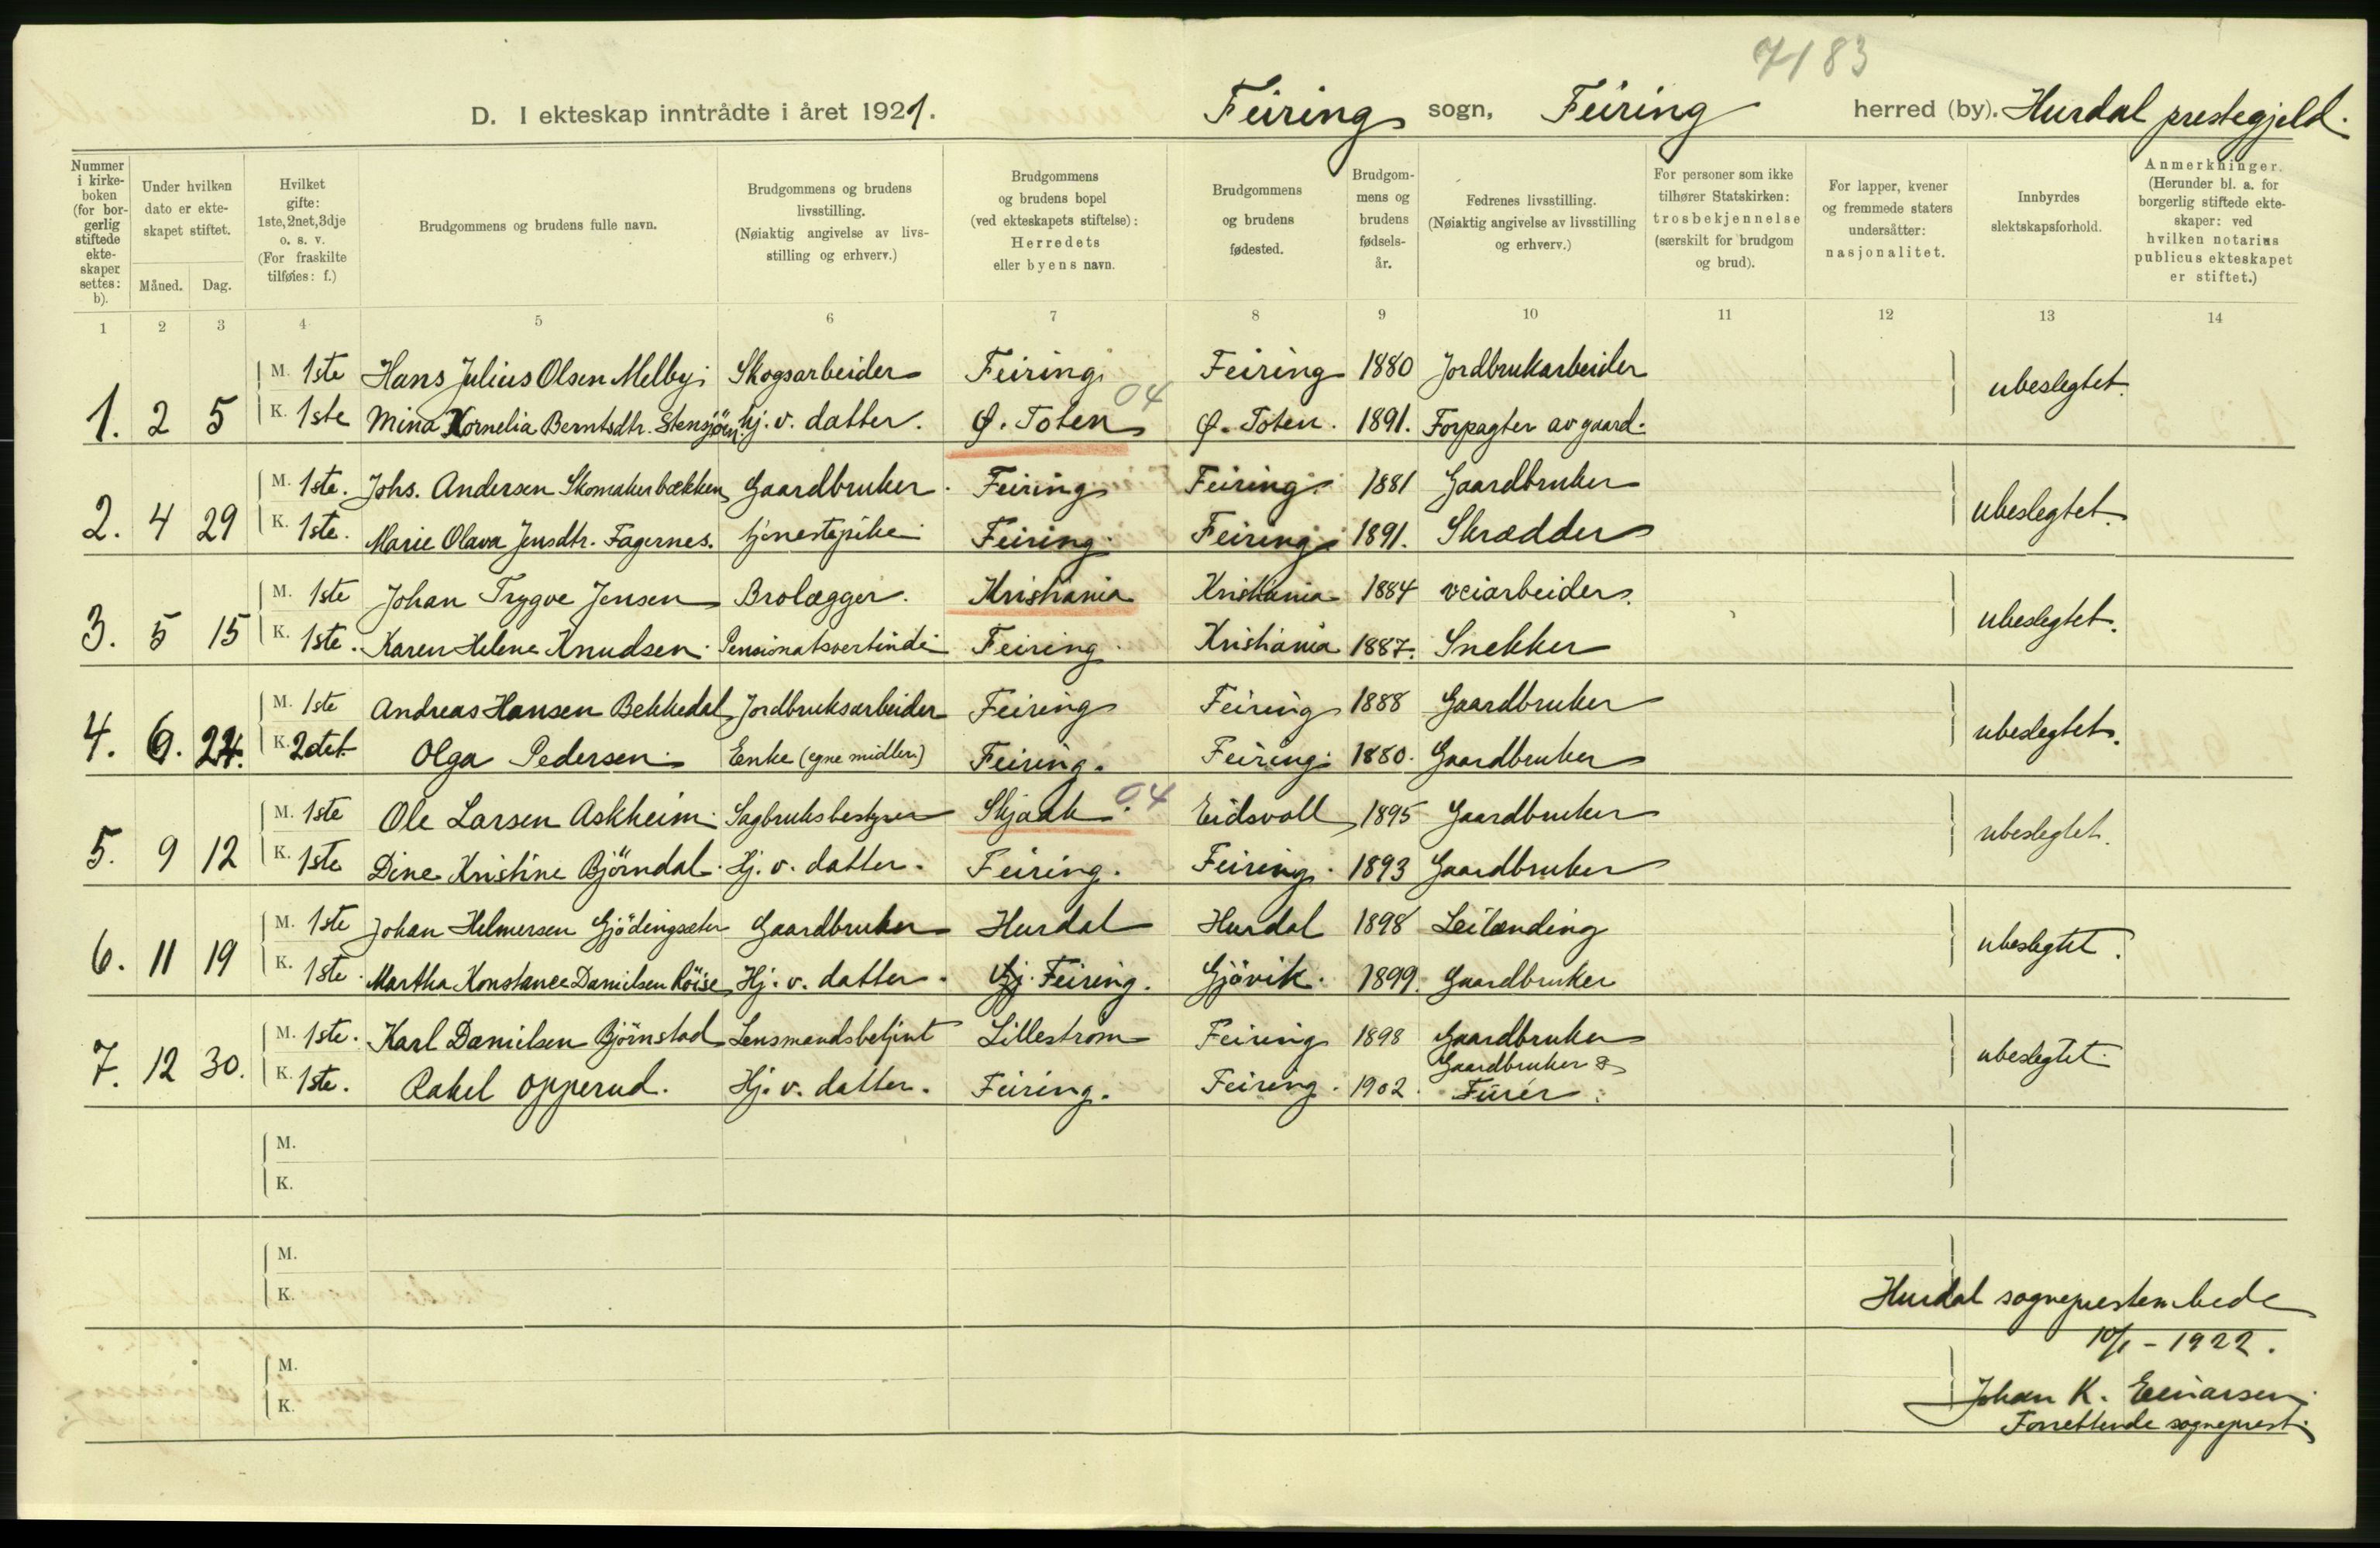 7183
D. I ekteskap inntrådte i året 1921. Feiring sogn, Feiring herred (by). Hurdal prestegjeld.
Nummer i kirke-boken (for bor-gerlig stiftede ekte-skaper settes: b).
Under hvilken dato er ekte-skapet stiftet.
Måned. Dag.
Hvilket gifte: 1ste, 2net, 3dje o. s. v. (For fraskilte tilføies: f.)
Brudgommens og brudens fulle navn.
Brudgommens og brudens livsstilling. (Nøiaktig angivelse av livs-stilling og erhverv.)
Brudgommens og brudens bopel (ved ekteskapets stiftelse): Herredets eller byens navn.
Brudgommens og brudens fødested.
Brudgom-mens og brudens fødsels-år.
Fedrenes livsstilling. (Nøiaktig angivelse av livsstilling og erhverv.)
For personer som ikke tilhører Statskirken: trosbekjennelse (særskilt for brudgom og brud).
For lapper, kvener og fremmede staters undersåtter: nasjonalitet.
Innbyrdes slektskapsforhold.
Anmerkninger. (Herunder bl. a. for borgerlig stiftede ekte-skaper: ved hvilken notarius publicus ekteskapet er stiftet.)
1 2 3 4 5 6 7 8 9 10 11 12 13 14
M. 1ste Hans Julius Olsen Melby Skogsarbeider Feiring Feiring 1880 Jordbrukarbeider ubeslegtet.
1. 2 5 K. 1ste Mina Kornelia Berntsdtr. Stensjöen hj. v. datter. Ø. Toten 04 Ø. Toten. 1891. Forpagter av gaard.
M. 1ste. Johs. Andersen Skomakerbækken Gaardbruker. Feiring Feiring 1881 Gaardbruker ubeslegtet.
2. 4 29 K. 1ste. Marie Olava Jensdtr. Fagernes. tjenestepike Feiring. Feiring 1891. Skrædder
M. 1ste Johan Trygve Jensen Brolægger. Kristiania Kristiania 1884 veiarbeider. ubeslegtet.
3. 5 15 K. 1ste. Karen Helene Knudsen. Pensionatsvertinde Feiring Kristiania 1887. Snekker
M. 1ste Andreas Hansen Bekkedal Jordbruksarbeider Feiring Feiring 1888 Gaardbruker ubeslegtet.
4. 6. 24. K. 2det Olga Pedersen. Enke (egne midler) Feiring. Feiring. 1880. Gaardbruker
M. 1ste Ole Larsen Askheim. Sagbruksbestyrer Skjaak. 04 Eidsvoll 1895 Gaardbruker ubeslegtet.
5. 9 12 K. 1ste Dine Kristine Björndal. Hj. v. datter. Feiring. Feiring. 1893 Gaardbruker
M. 1ste Johan Helmersen Gjödingseter Gaardbruker Hurdal Hurdal 1898 Leilænding ubeslegtet.
6. 11 19 K. 1ste. Martha Konstance Danielsen Röise Hj. v. datter. Gj. Feiring. Gjövik. 1899. Gaardbruker
M. 1ste. Karl Danielsen Björnstad Lensmandsbetjent Lillestrøm Feiring 1898 Gaardbruker ubeslegtet.
7. 12 30. K. 1ste. Rakel Opperud. Hj. v. datter. Feiring. Feiring. 1902. Gaardbruker & Furér.
M.
K.
M.
K.
M.
K.
Hurdal sogneprestembede
10/1 - 1922.
Johan K. Eenarsen.
Forrettende sogneprest.